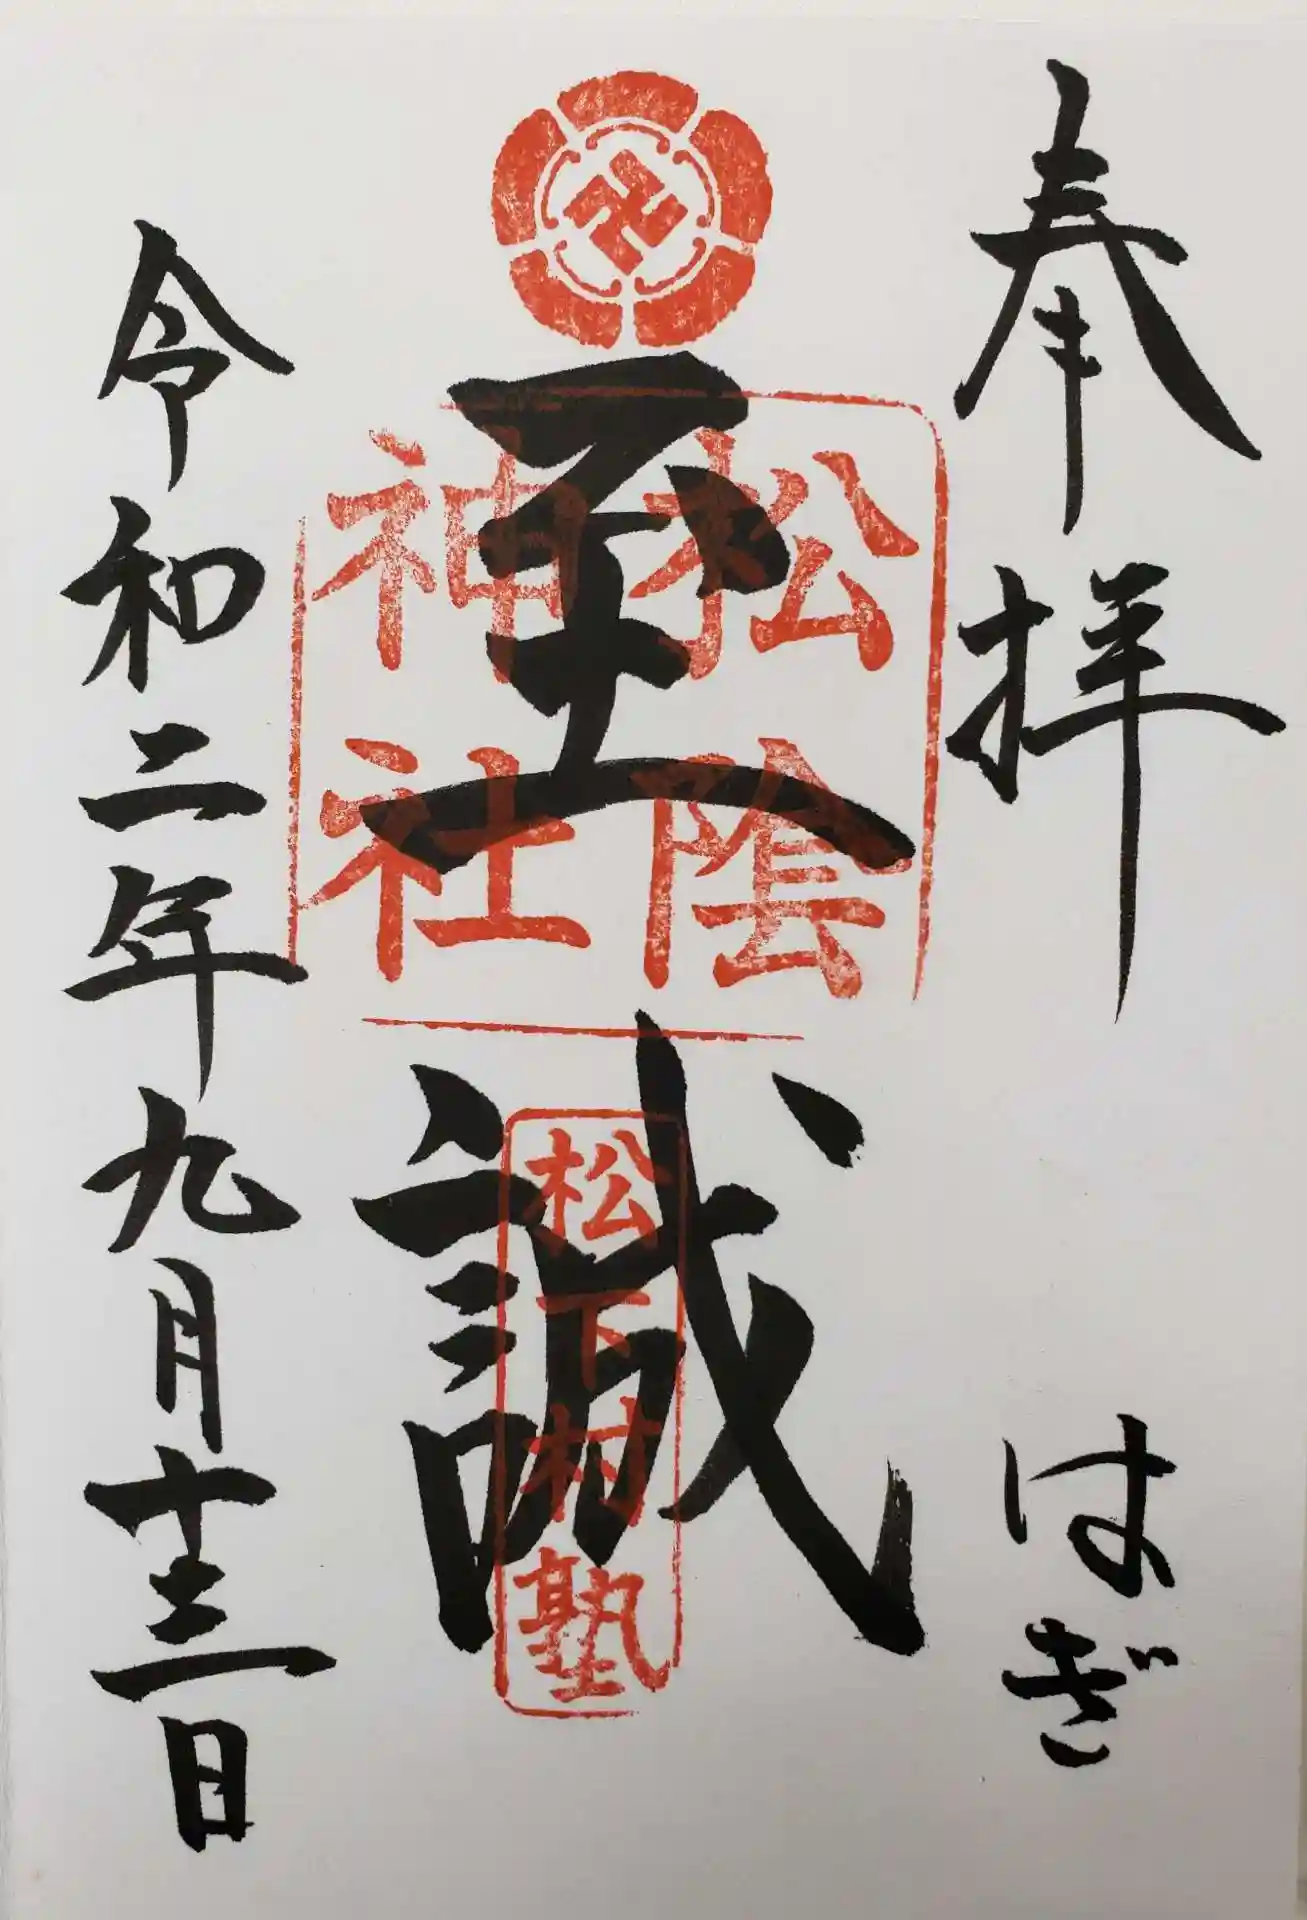 奉拝 はぎ
至誠
松陰
神社
松下村塾
令和二年九月十三日